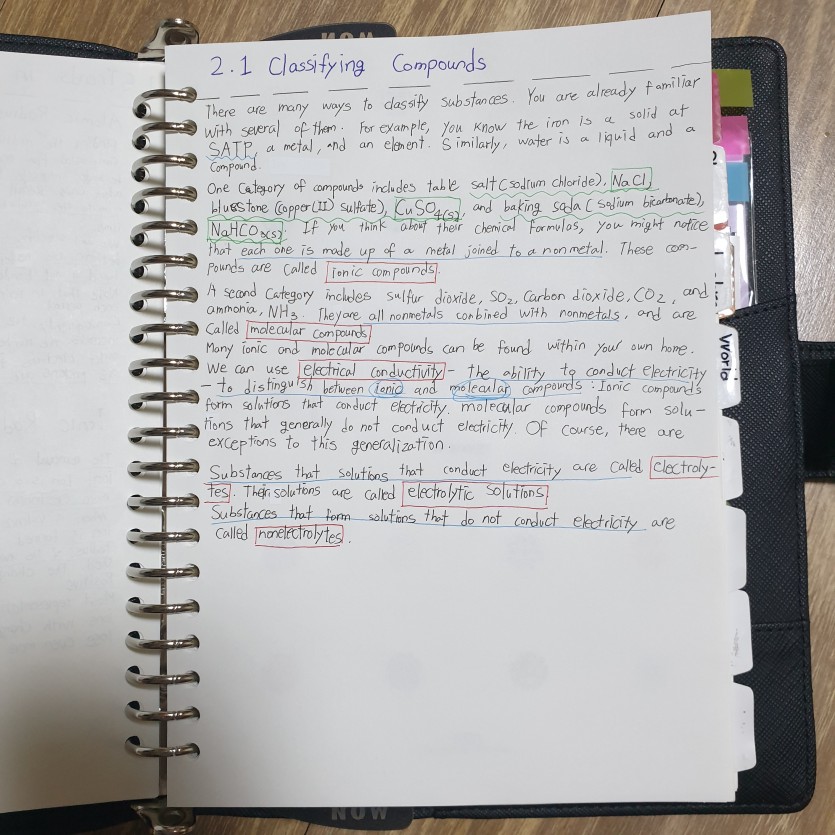 NOW
2.1 Classifying Compounds
There are many ways to classify substances. You are already familiar
with several of them. For example, you know the iron is a solid at
SATP, a metal, and an element. Similarly, water is a liquid and a
compound.
One category of compounds includes table salt (sodium chloride), NaCl,
bluestone (copper(II) sulfate), CuSO4(s), and baking soda (sodium bicarbonate),
NaHCO3(s). If you think about their chemical formulas, you might notice
that each one is made up of a metal joined to a nonmetal. These com-
pounds are called ionic compounds.
A second category includes sulfur dioxide, SO2, Carbon dioxide, CO2, and
ammonia, NH3. They are all nonmetals combined with nonmetals, and are
called molecular compounds
Many ionic and molecular compounds can be found within your own home.
We can use electrical conductivity - the ability to conduct electricity
- to distinguish between ionic and molecular compounds : Ionic compounds
form solutions that conduct electricity. molecular compounds form solu-
tions that generally do not conduct electricity. Of course, there are
exceptions to this generalization.
Substances that solutions that conduct electricity are called electroly-
tes. Their solutions are called electrolytic solutions
Substances that form solutions that do not conduct electricity are
called nonelectrolytes.
World
NOW